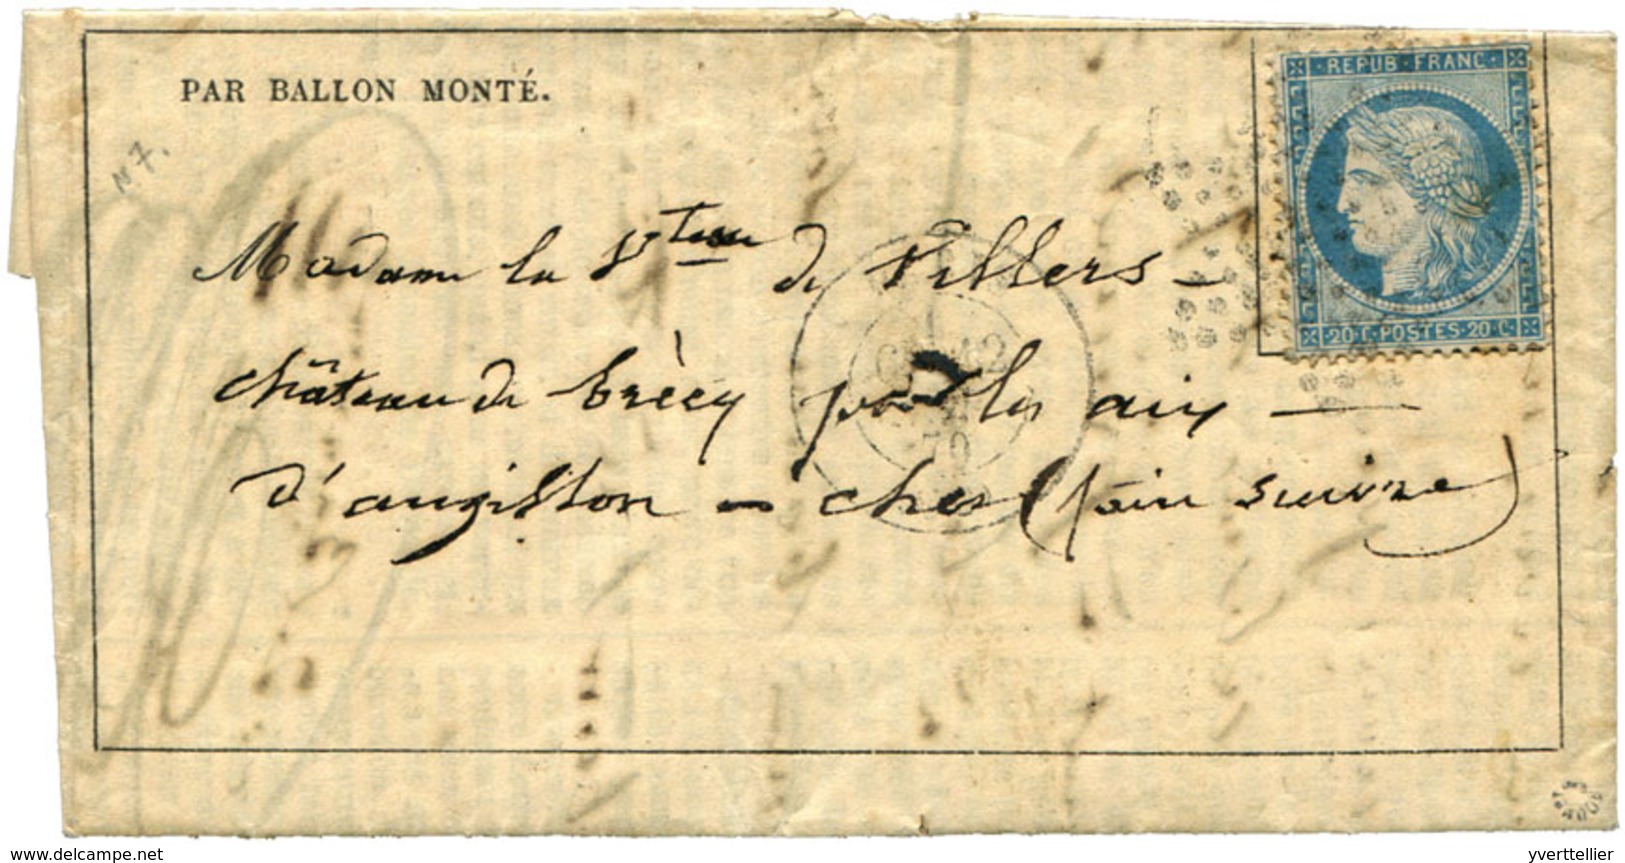 PAR BALLON MONTÉ.
N 7.
REPUB FRANC
20 C POSTES 20 C
Madame la Vtesse de Villers
château de brécy par les aix
d'angillon - cher (faire suivre)
70
www.delcampe.net
yverttellier